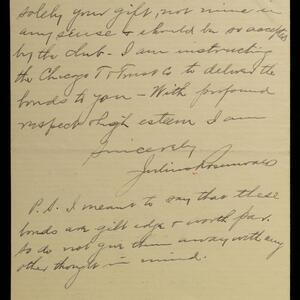 solely your gift, not mine in
any sense & should be so accepted
by the club - I am instructing
the Chicago T & Trust Co to deliver the
bonds to you - With profound
respect & high esteem I am
Sincerely
Julius Rosenwald
P.S. I meant to say that these
bonds are gilt edge & worth par.
so do not give them away with any
other thought in mind.